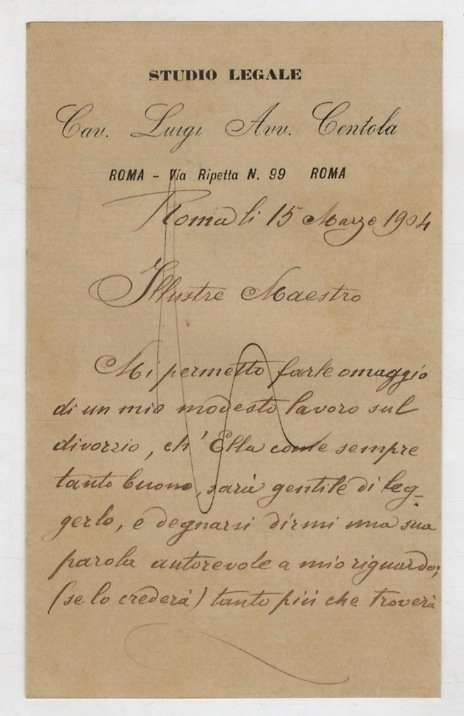 STUDIO LEGALE
Cav. Luigi Avv. Centola
ROMA - Via Ripetta N. 99 ROMA
Roma li 15 Marzo 1904
Illustre Maestro
Mi permetto farle omaggio
di un mio modesto lavoro sul
divorzio, ch' Ella come sempre
tanto buono, sarà gentile di leg-
gerlo, e degnarsi dirmi una sua
parola autorevole a mio riguardo;
(se lo crederà) tanto più che troverà